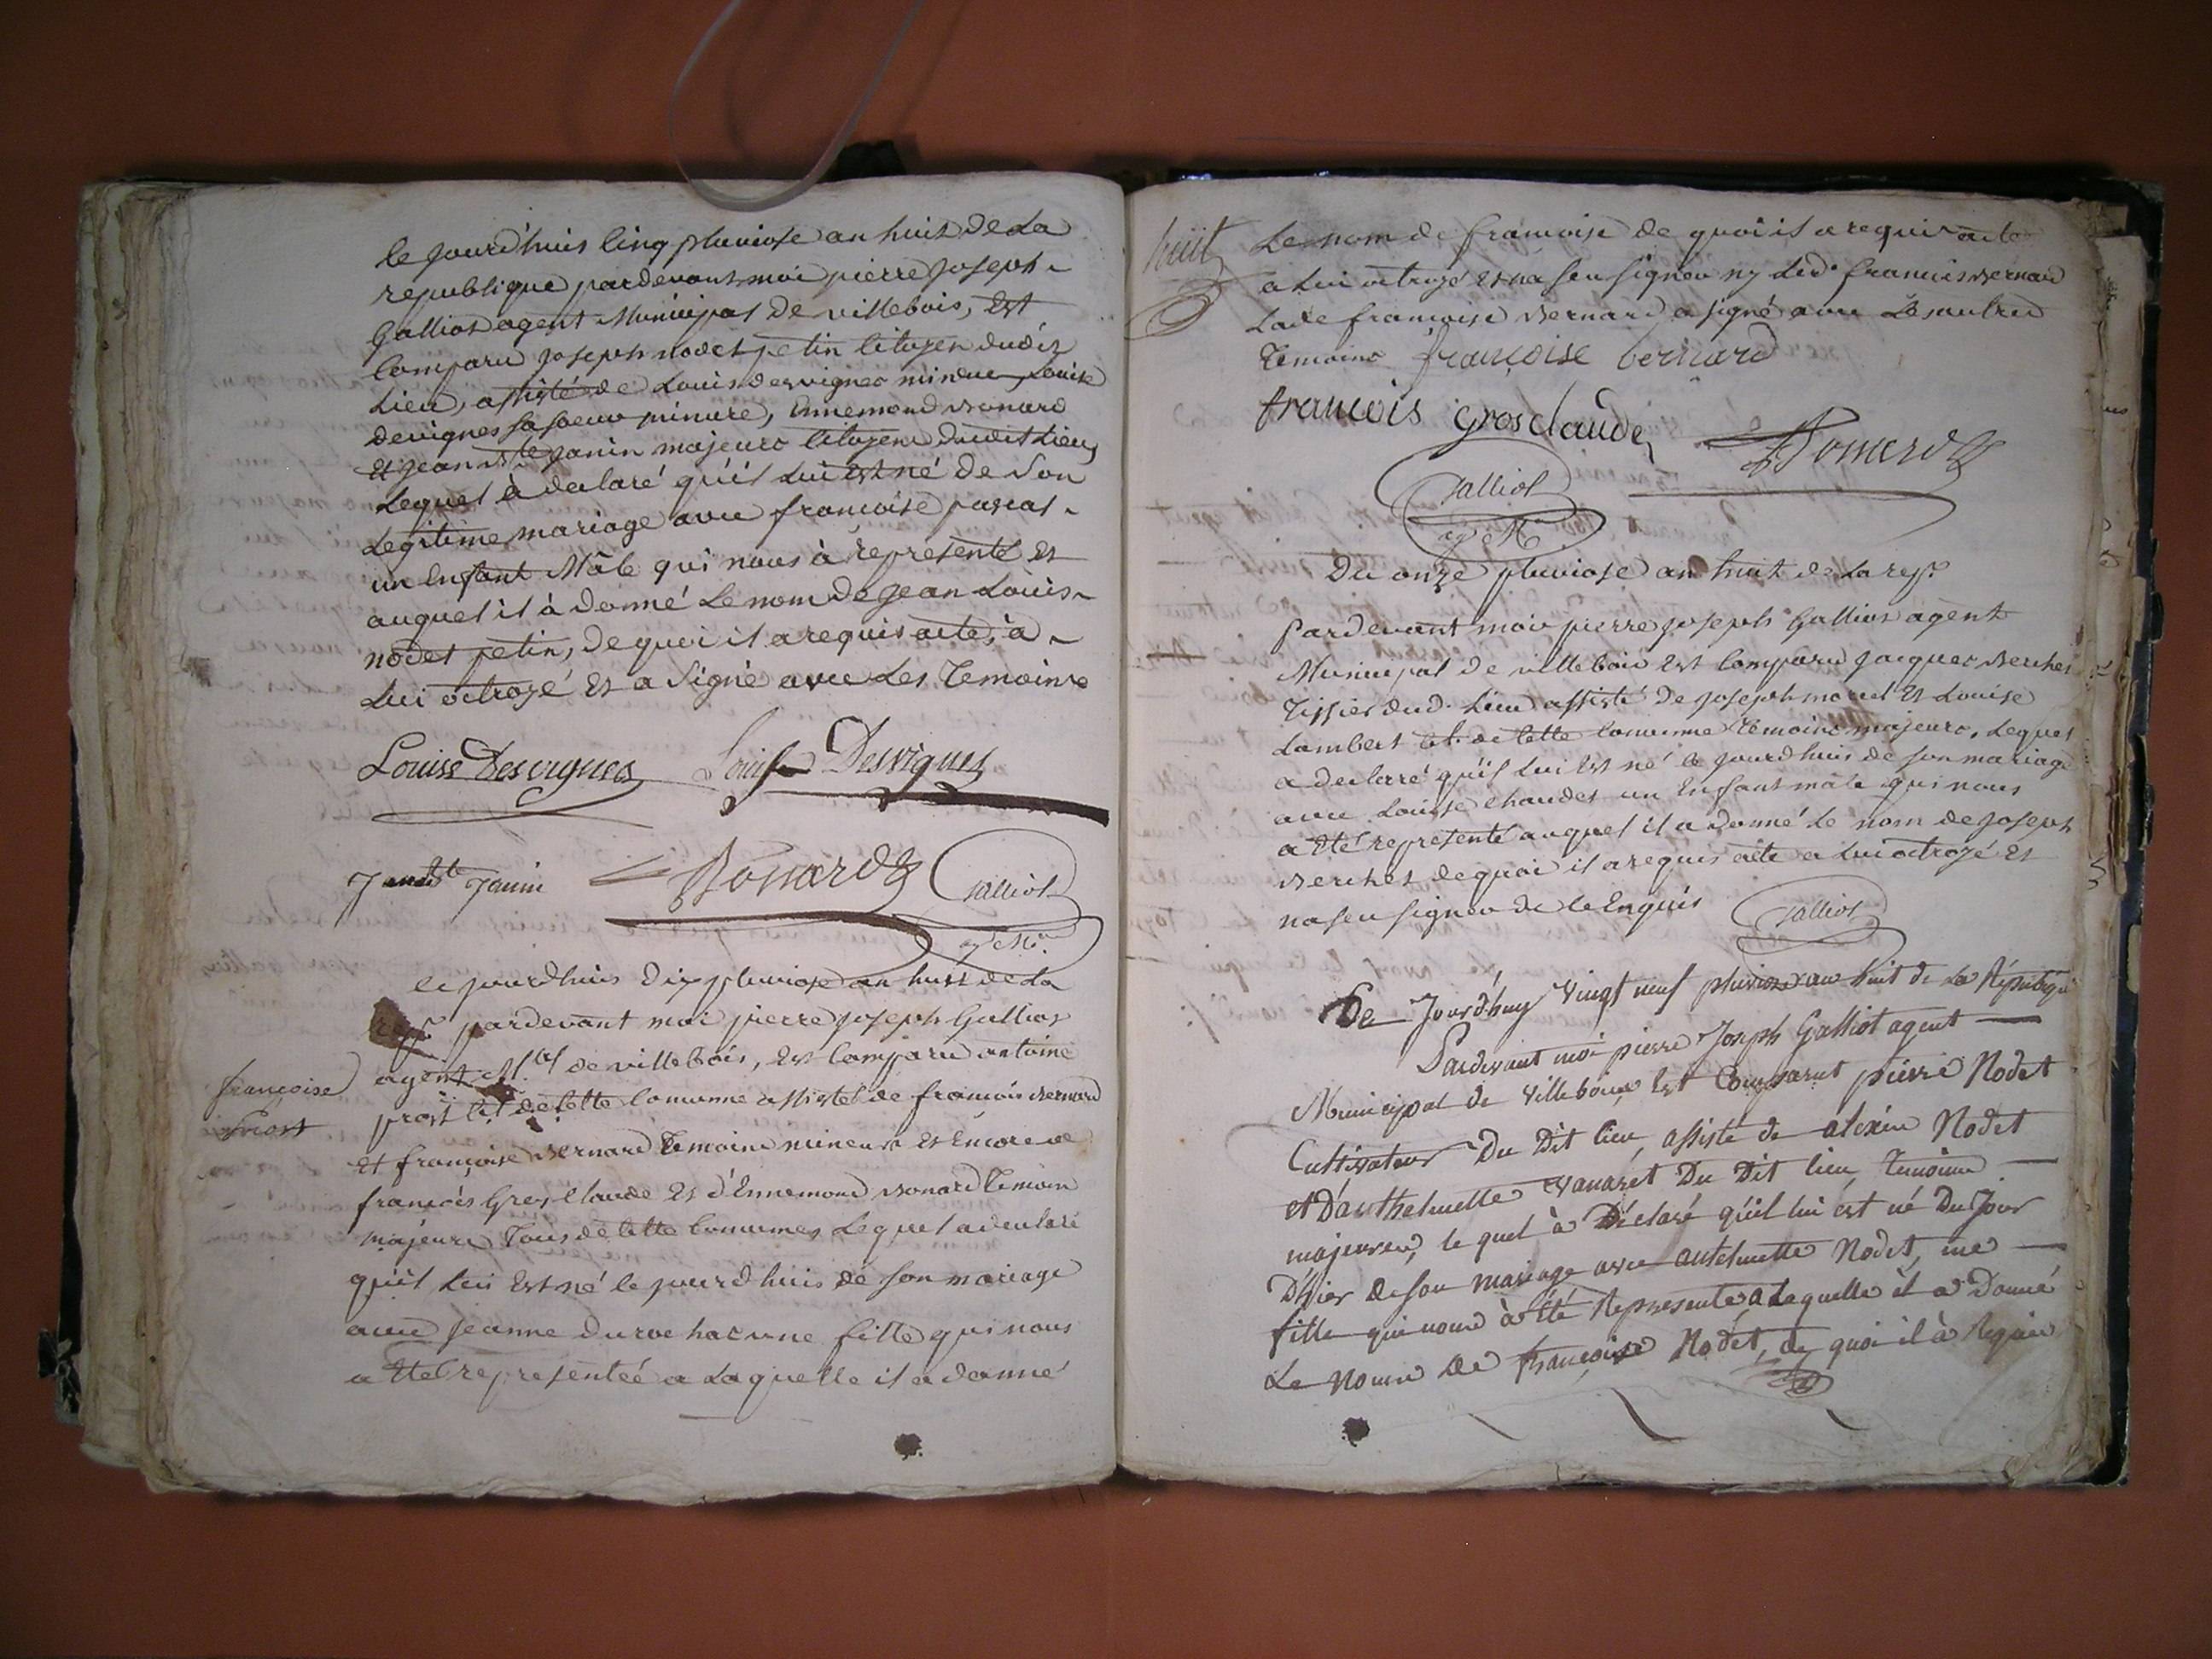 le jourd'huis Cinq pluviose an huit de La
republique pardevant moi pierre joseph
Galliot agent Municipal de villebois, Est
Comparu joseph nodet petin Citoyen dudit
Lieu, assisté de Louis desvignes mineur, Louise
devignes sa soeur mineure, Ennemond Bonard
Et jean Bte janin majeurs Citoyens dudit Lieu
Lequel à declaré qu'il Lui Est né de Son
Legitime mariage avec francoise pascal
un Enfant Mâle qui nous à representé Et
auquel il à donné Le nom de jean Louis
nodet petin, de quoi il a requis acte, à
Lui octroyé Et a Signé avec Les Temoins
Louise Desvignes Louis Desvignes
Jean Bte Janin Bonard Galliot
agt Mal
Le jourd'huis dix pluviose an huit de La
repe pardevant moi pierre joseph Galliot
agent Mal de villebois, Est Comparu antoine
françoise
prost
prost Cit. de Cette Commune assisté de francois Bernard
Et françoise Bernard Temoins mineurs Et Encore de
francois Gros Claude Et d'Ennemond Bonard Temoins
majeurs Tous de Cette Commune, Lequel a declaré
qu'il Lui Est né le jourdhuis de son mariage
avec jeanne durochat une fille qui nous
a Eté representée a Laquelle il a donné
huit
Le nom de francoise de quoi il a requis acte
a Lui octroyé Et n'a seu signer ny Led. francois Bernard
Ladte francoise Bernard a signé avec Les autres
Temoins françoise bernard
francois Grosclaude Bonard
Galliot
agt Mal
Du onze pluviose an huit de La repe
Pardevant moi pierre joseph Galliot agent
Municipal de villebois Est Comparu jacques Berchet
Tissier dud. Lieu assisté de joseph morel Et Louise
Lambert Cit. de Cette Commune Temoins majeurs, Lequel
a declaré qu'il Lui Est né Ce jourdhuis de son mariage
avec Louise chaudet un Enfant mâle qui nous
a Eté representé auquel il a donné Le nom de joseph
Berchet de quoi il a requis acte a Lui octroyé Et
na seu signer de Ce Enquis Galliot
De Jourd'huy vingt neuf pluviose an huit de La Republique
Pardevant moi pierre Joseph Galliot agent
Municipal de villebois Est Comparut pierre Nodet
Cultivateur Du Dit lieu, assisté de aléxix Nodet
et D'anthelmette vanaret Du Dit lieu, temoins
majeures, le quel à Déclaré qu'il lui est né Du Jour
D'hier de son mariage avec antelmette Nodet, une
fille qui nous à été Représenté a Laquelle il a Donné
Le Nom De françoise Nodet, de quoi il à Requis